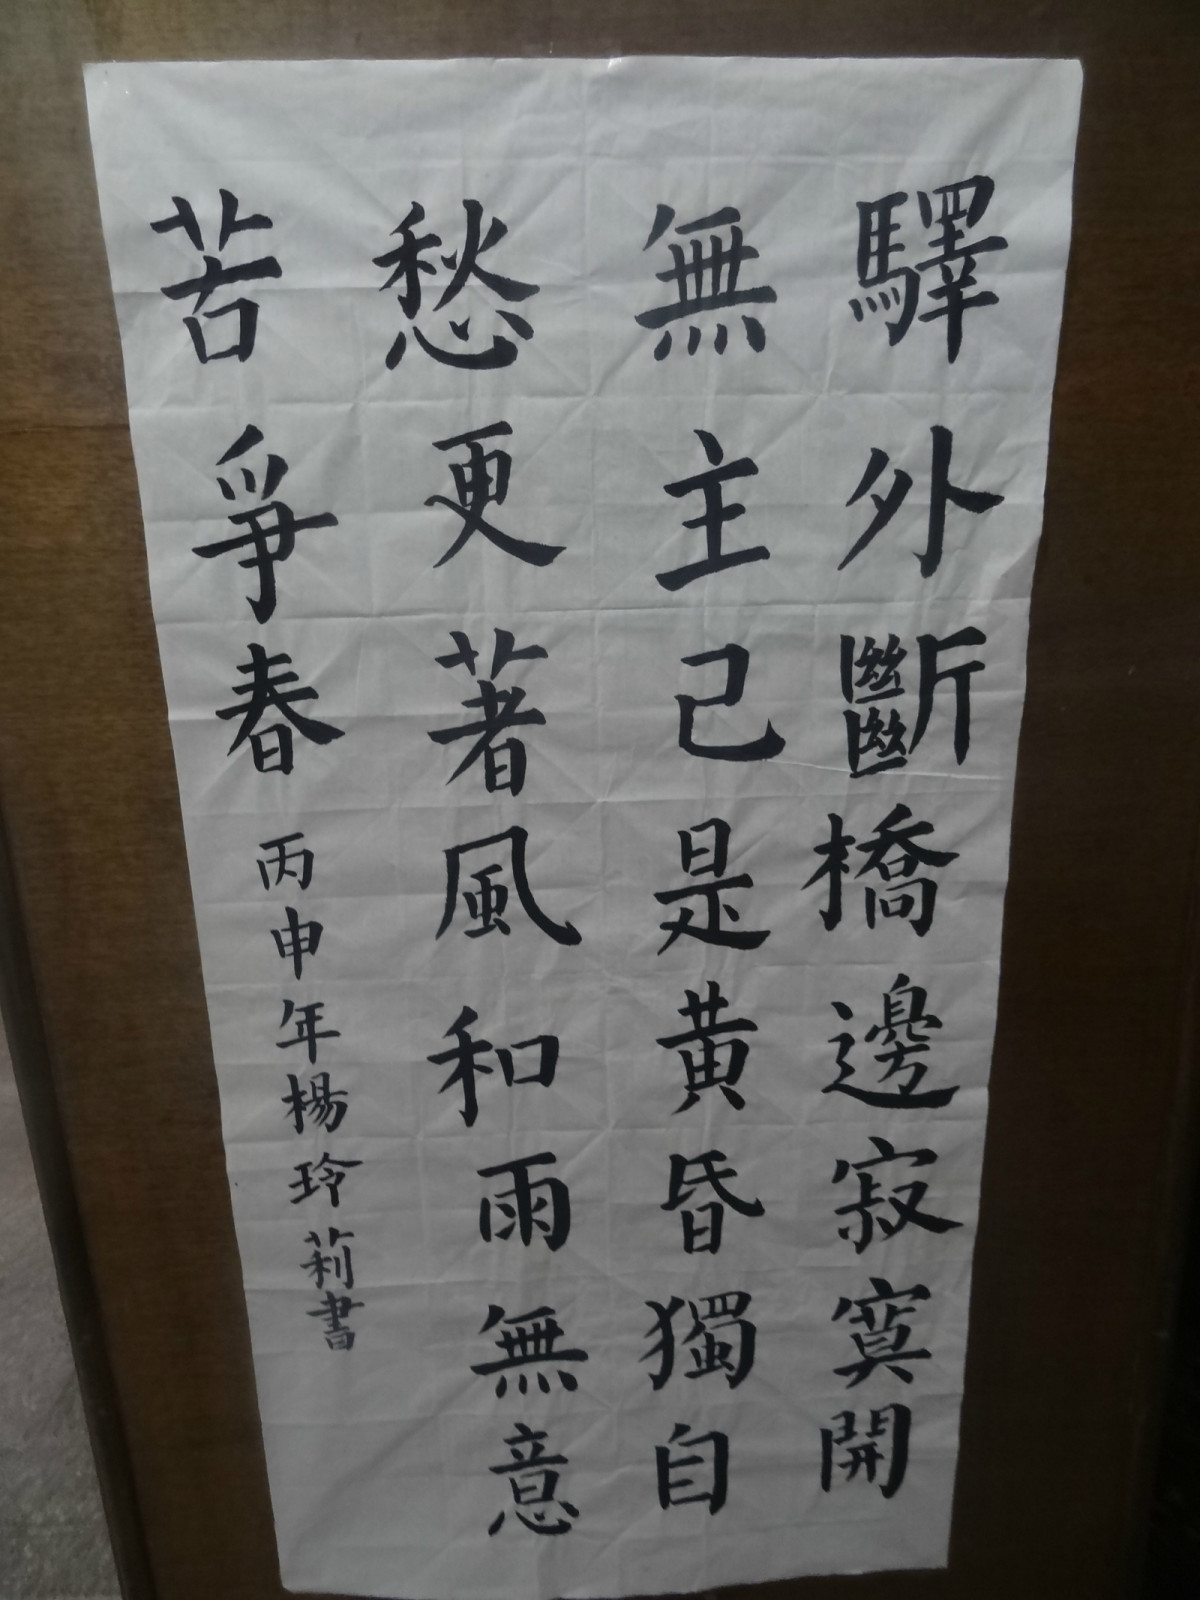 驛外斷橋邊寂寞開
無主己是黃昏獨自
愁更著風和雨無意
苦爭春
丙申年楊玲莉書